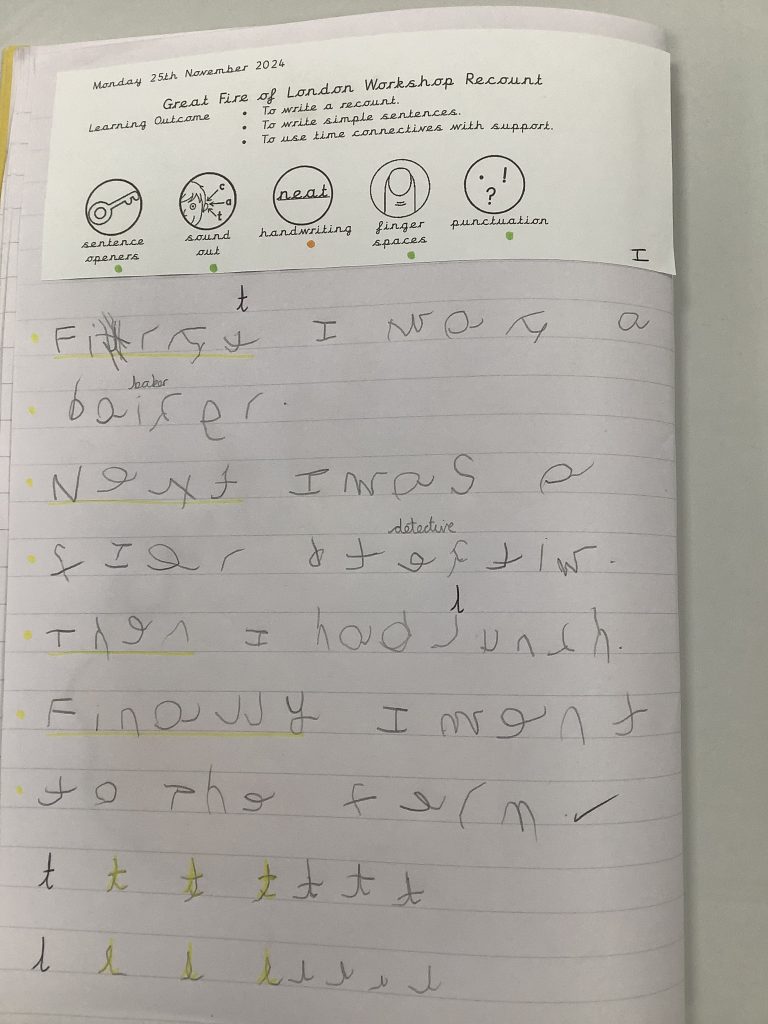 Monday 25th November 2024
Great Fire of London Workshop Recount
Learning Outcome
• To write a recount.
• To write simple sentences.
• To use time connectives with support.
c
a
t
neat
. ! ?
sentence openers
sound out
handwriting
finger spaces
punctuation
I
t
First I was a
baker
bairker.
Next I was a
detective
fier dtectiv.
l
Then I had lunch.
Finally I went
to the ferm ✓
t t t t t t t
l l l l l l l l